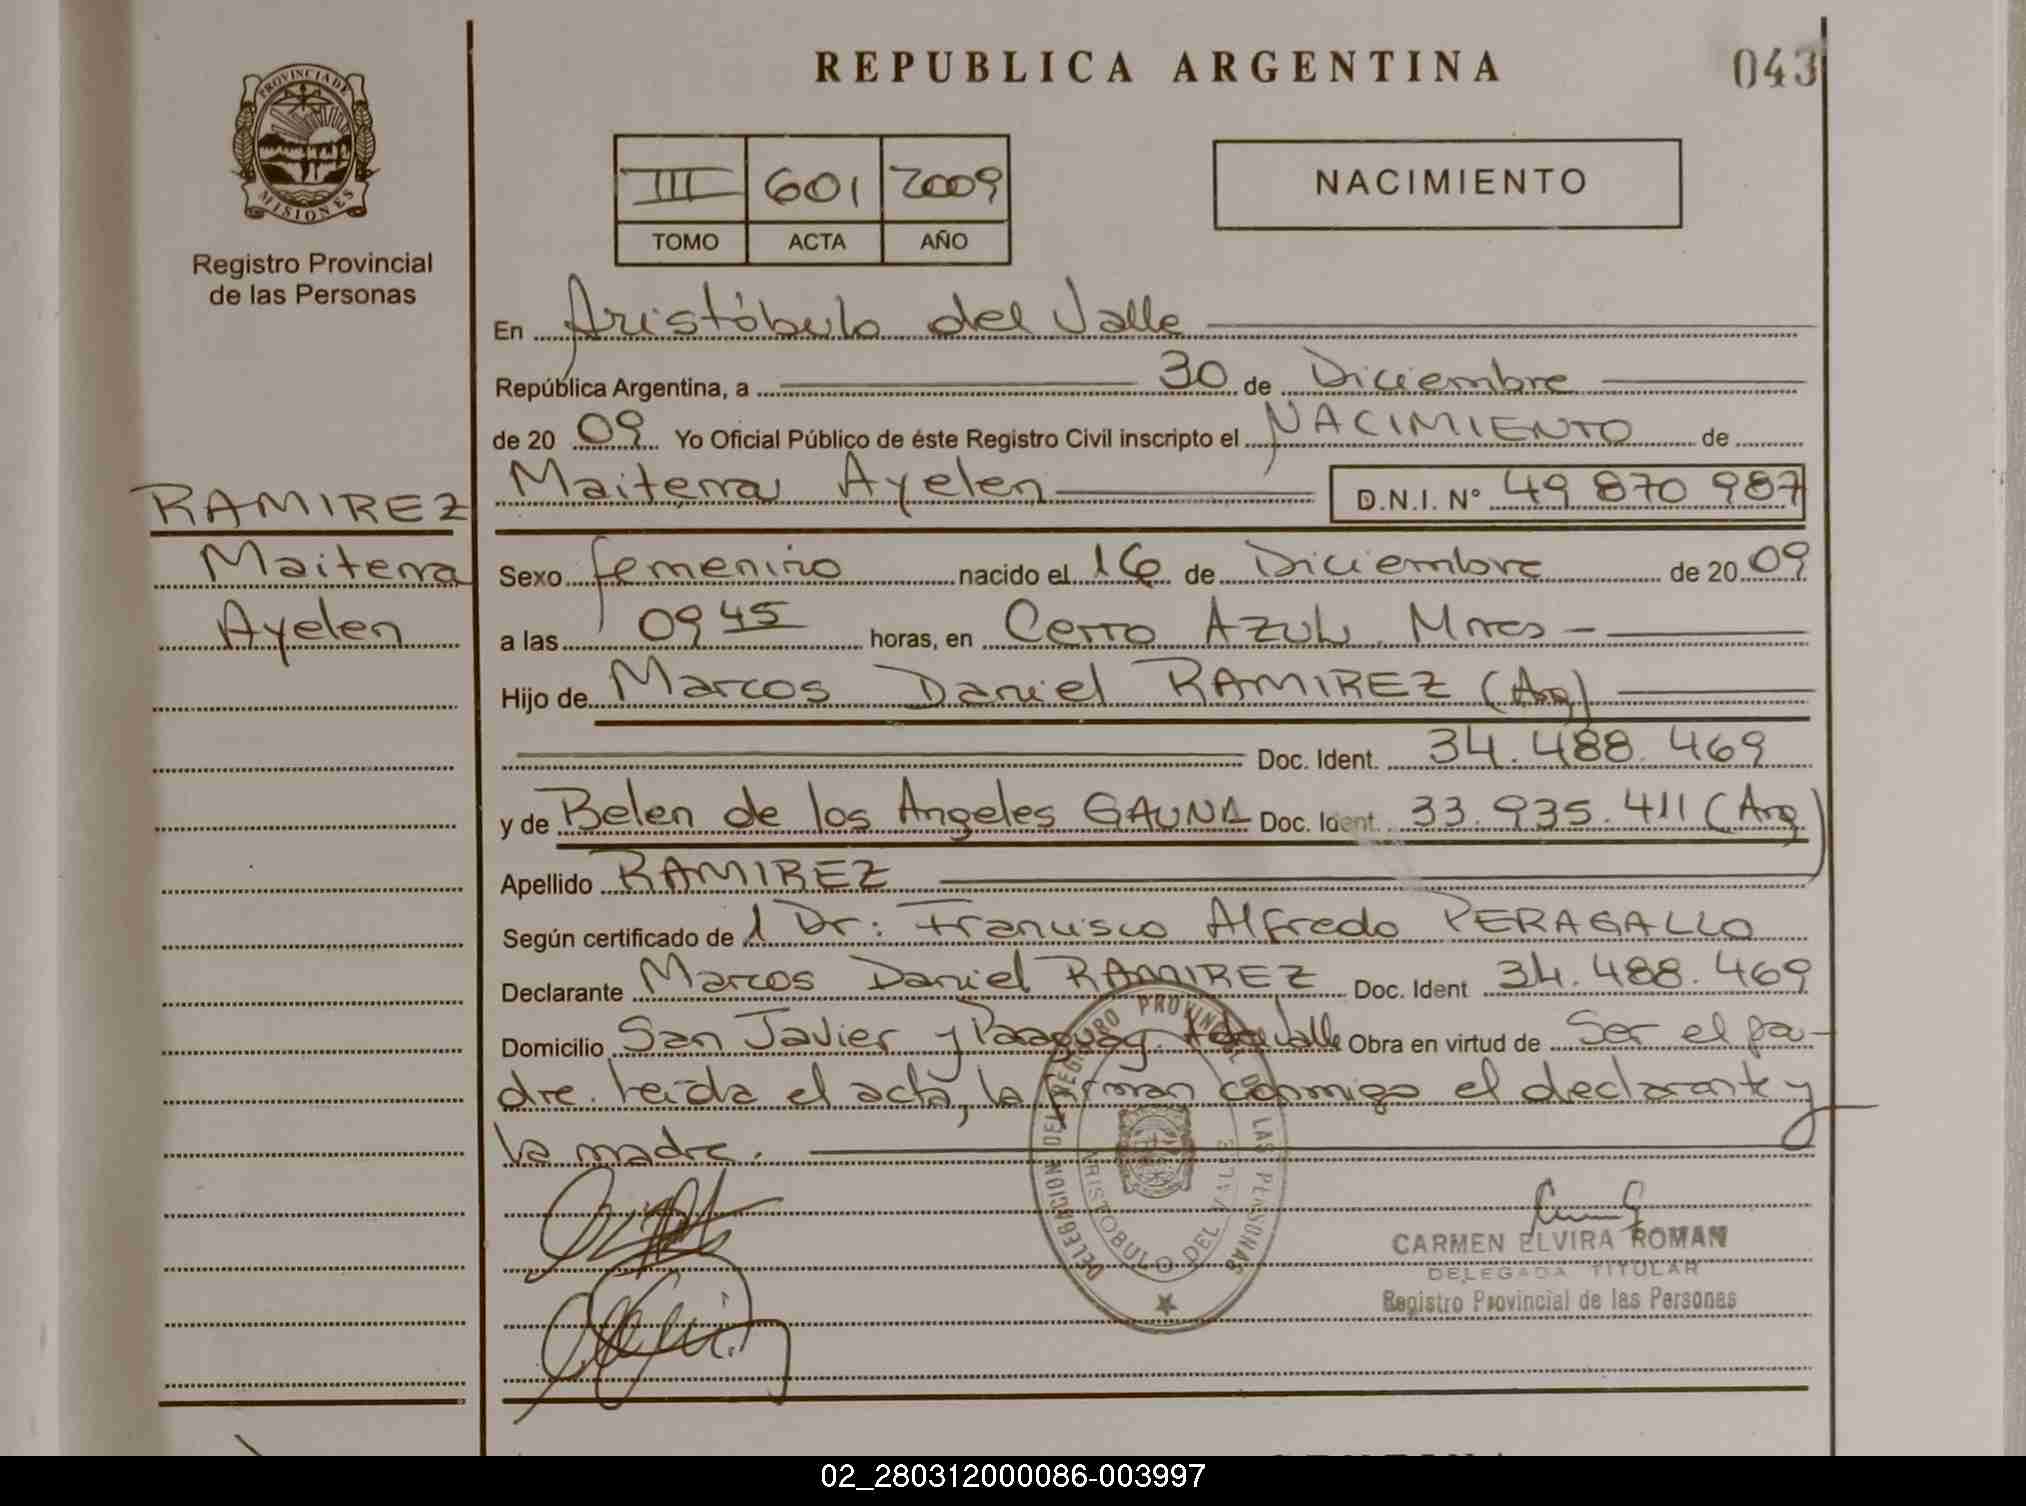 PROVINCIA DE
MISIONES
Registro Provincial
de las Personas
RAMIREZ
Maitena
Ayelen
REPUBLICA ARGENTINA
043
III 601 2009
TOMO ACTA AÑO
NACIMIENTO
En Aristóbulo del Valle
República Argentina, a 30 de Diciembre
de 20 09 Yo Oficial Público de éste Registro Civil inscripto el NACIMIENTO de
Maitena Ayelen D.N.I. N° 49 870 987
Sexo femenino nacido el 16 de Diciembre de 20 09
a las 09 45 horas, en Cerro Azul, Mnes
Hijo de Marcos Daniel RAMIREZ (Arg)
Doc. Ident. 34.488.469
y de Belen de los Angeles GAUNA Doc. Ident. 33.935.411 (Arg)
Apellido RAMIREZ
Según certificado de l Dr: Francisco Alfredo PERAGALLO
Declarante Marcos Daniel RAMIREZ Doc. Ident 34.488.469
Domicilio San Javier y Paraguay. A del Valle Obra en virtud de Ser el pa-
dre. Leída el acta, la firman conmigo el declarante y
la madre.
DELEGACION DEL REGISTRO PROVINCIAL DE LAS PERSONAS
ARISTOBULO DEL VALLE
CARMEN ELVIRA ROMAN
DELEGADA TITULAR
Registro Provincial de las Personas
02_280312000086-003997